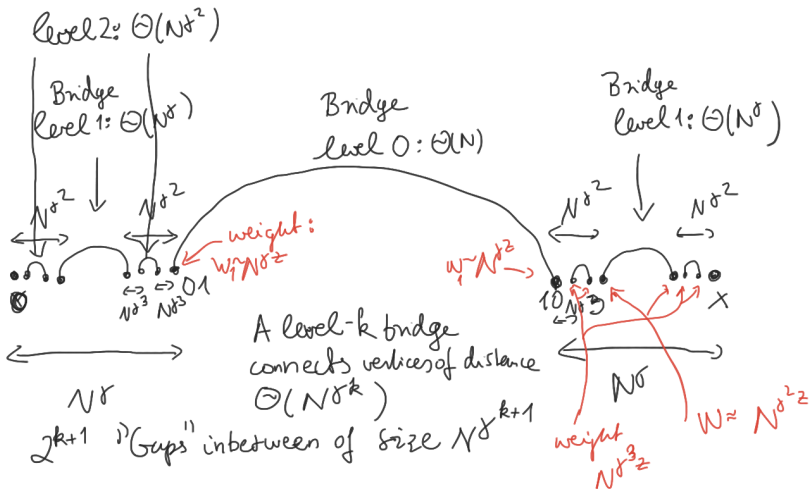 level 2: Θ(N^γ^2)
Bridge
level 1: Θ(N^γ)
Bridge
level 0: Θ(N)
Bridge
level 1: Θ(N^γ)
N^γ^2
N^γ^2
N^γ^2
N^γ^2
weight:
W_1≈N^γz
W_1≈N^γz
0
01
10
x
N^γ^3
N^γ^3
N^γ^3
A level-k bridge
connects vertices of distance
Θ(N^γ^k)
N^γ
N^γ
2^k+1 "Gaps" inbetween of size N^γ^k+1
weight
N^γ^3z
W≈ N^γ^2z